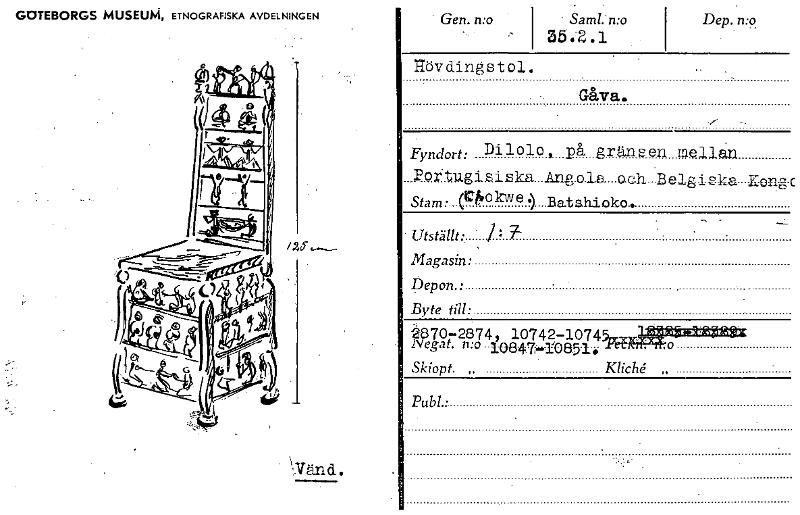 GÖTEBORGS MUSEUM, ETNOGRAFISKA AVDELNINGEN
125 cm
Vänd.
Gen. n:o Saml. n:o Dep. n:o
35.2.1
Hövdingstol.
Gåva.
Fyndort: Dilolo, på gränsen mellan
Portugisiska Angola och Belgiska Kongo
Stam: (Chokwe.) Batshioko.
Utställt: 1:7
Magasin:
Depon.:
Byte till:
2870-2874, 10742-10745
Negat. n:o 10847-10851. Teckn. n:o
Skiopt. „ Kliché „
Publ.: